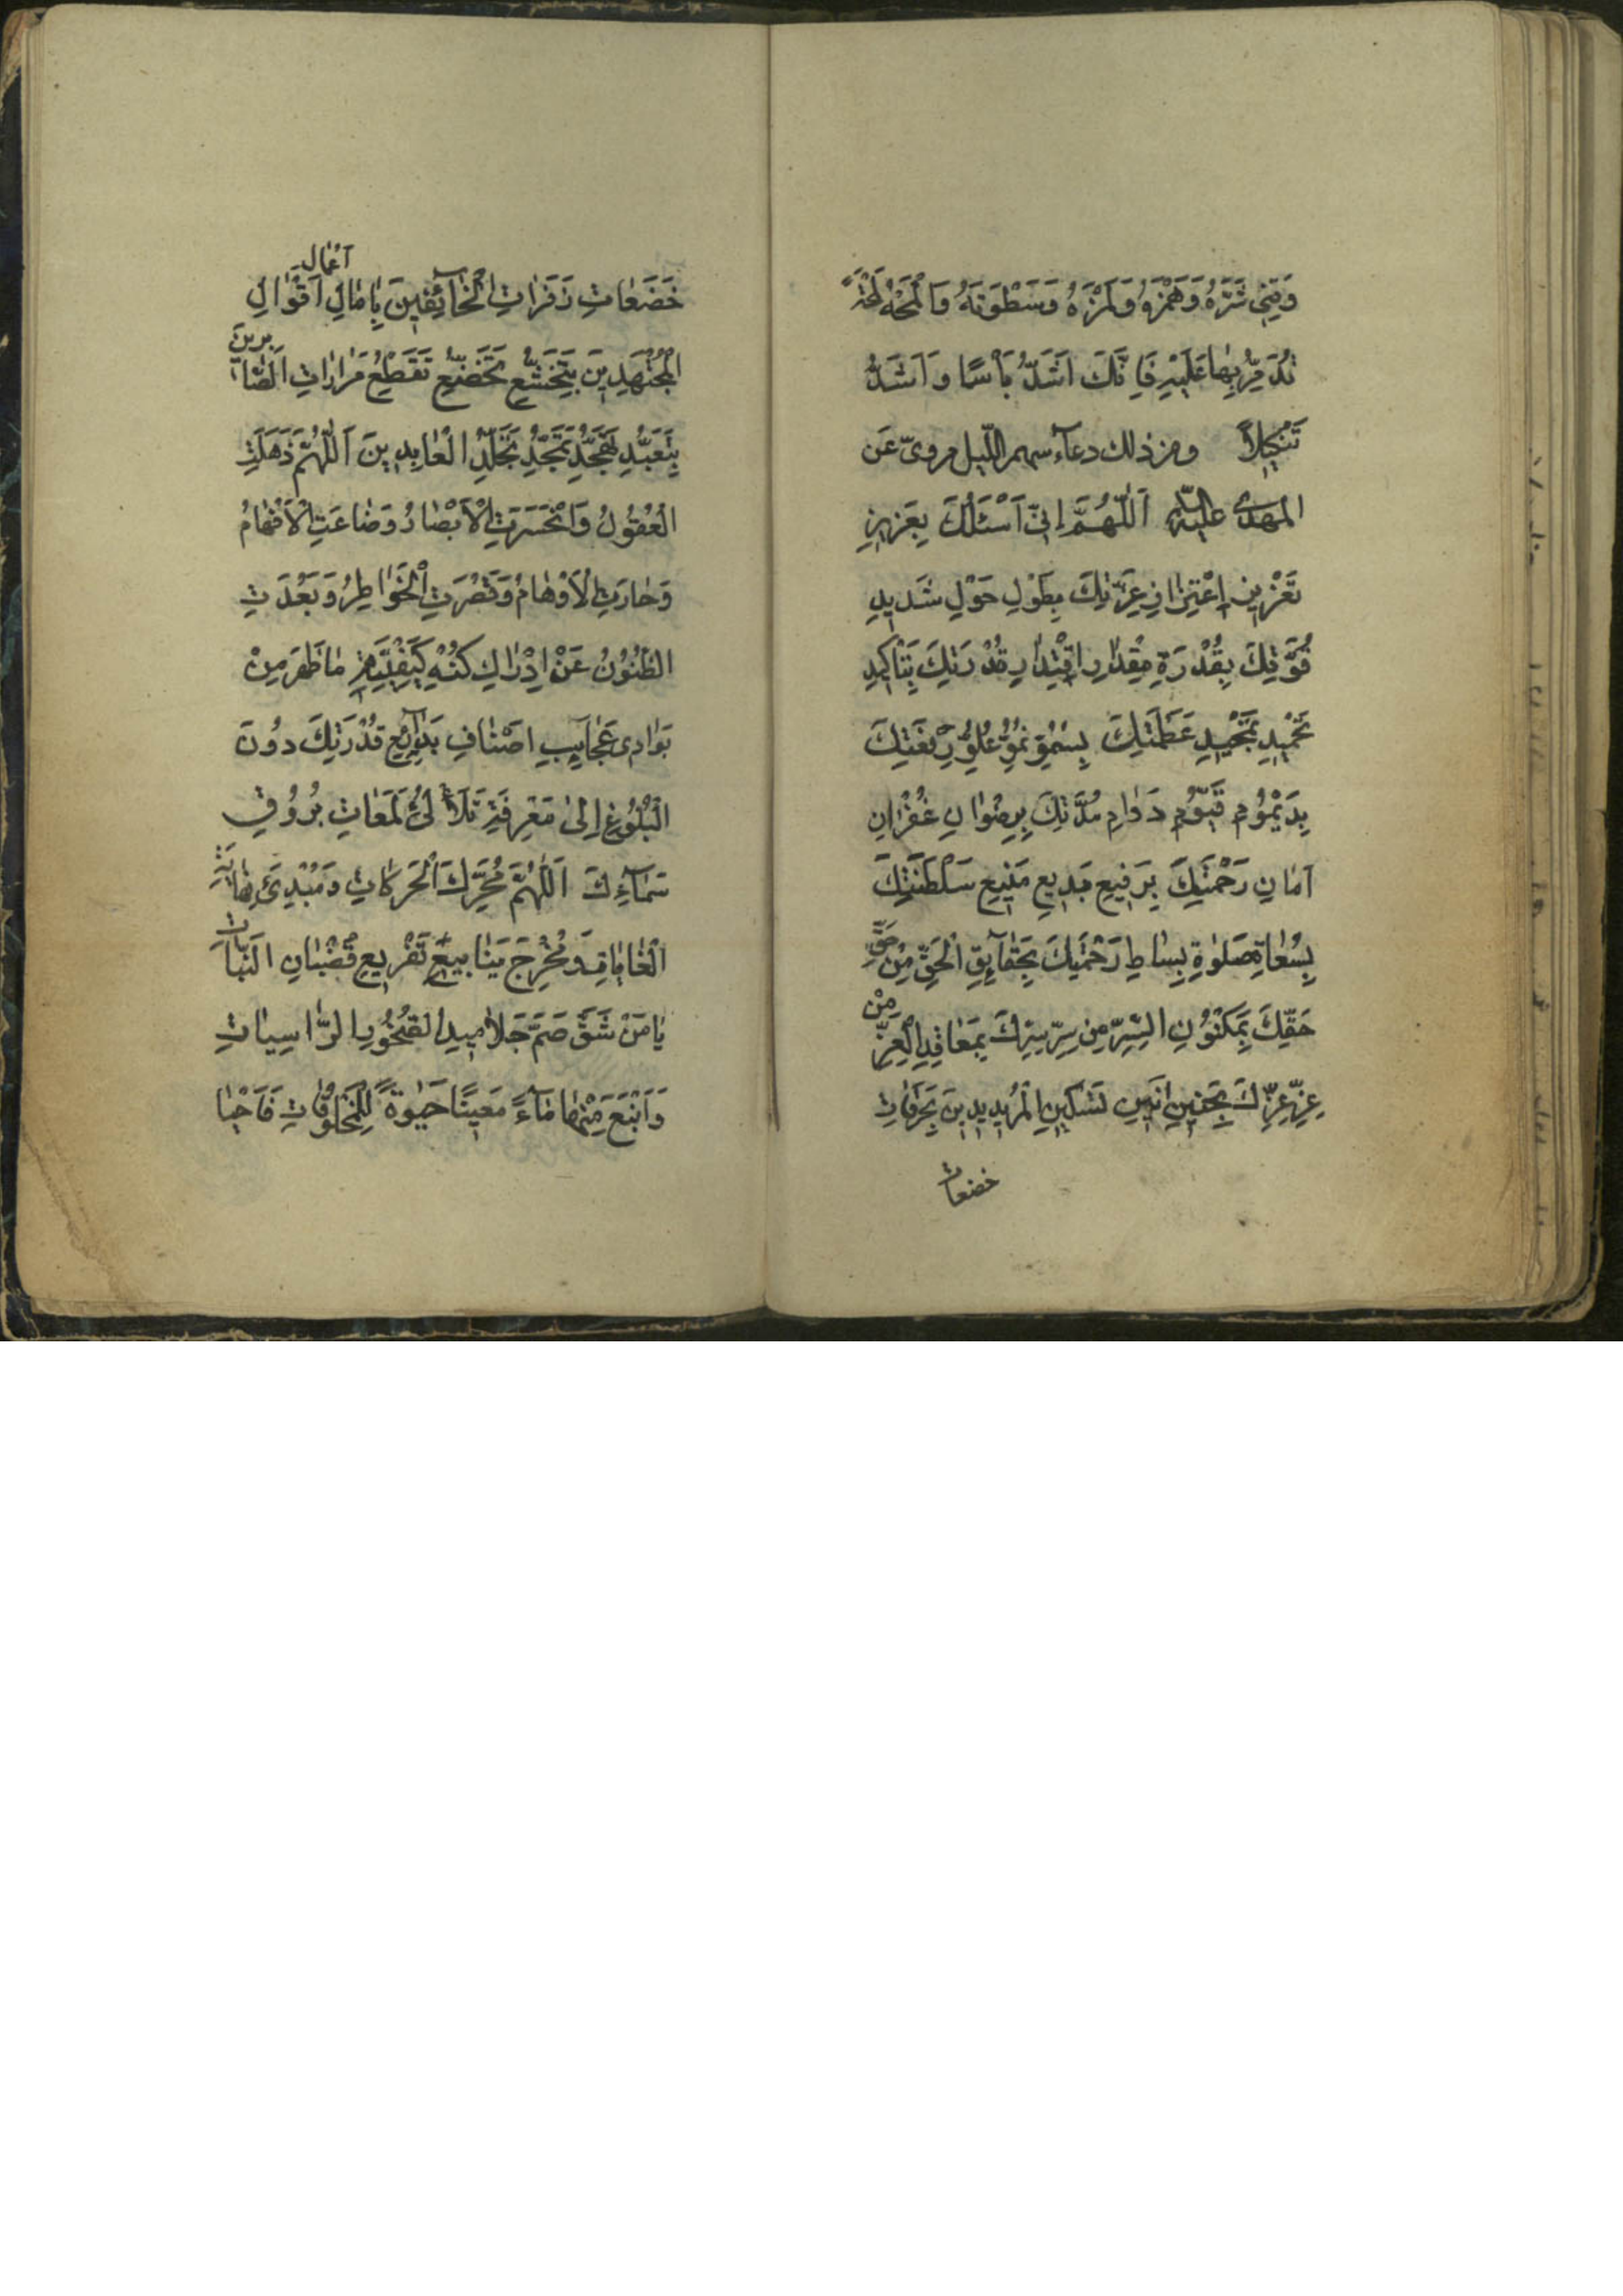 وَقِنِي شَرَّهُ وَهَمْزَهُ وَلَمْزَهُ وَسَطْوَتَهُ وَالْمَحْهُ لَمْحَةً
تُدَمِّرُ بِهَا عَلَيْهِ فَاِنَّكَ اَشَدُّ بَأْسًا وَ اَشَدُّ
تَنْكِيلاً ومن ذلك دعآء سهم اللّيل مروىّ عَن
المهدى عليه السّلم اَللّٰهُمَّ اِنّي اَسْئَلُكَ بِعَزِيزِ
تَعْزِيزِ اِعْتِزازِ عِزَّتِكَ بِطَوْلِ حَوْلِ شَدِيدِ
قُوَّتِكَ بِقُدْرَةِ مِقْدارِ اقْتِدارِ قُدْرَتِكَ بِتَاْكِيدِ
تَحْمِيدِ تَمْجِيدِ عَظَمَتِكَ بِسُمُوِّ نُمُوِّ عُلُوِّ رِفْعَتِكَ
بِدَيْمُومِ قَيُّومِ دَوامِ مُدَّتِكَ بِرِضْوانِ غُفْرانِ
اَمانِ رَحْمَتِكَ بِرَفِيعِ بَدِيعِ مَنِيعِ سَلْطَنَتِكَ
بِسُعاةِ صَلٰوةِ بِساطِ رَحْمَتِكَ بِحَقآئِقِ الْحَقِّ مِنْ حَقِّ
حَقِّكَ بِمَكْنُونِ السِّرِّ مِنْ سِرِّ سِرِّكَ بِمَعاقِدِ الْعِزِّ مِنْ
عِزِّ عِزِّكَ بِحَنِينِ اَنِينِ تَسْكِينِ الْمُرِيدِينَ بِحَرَقاتِ
خضعات
خَضَعاتِ زَفَراتِ الْخآئِفِينَ بِاٰمالِ اَعْمالِ اَقْوالِ
الْمُجْتَهِدِينَ بِتَخَشُّعِ تَخَضُّعِ تَقَطُّعِ مَراراتِ الصّابِرِينَ
بِتَعَبُّدِ تَهَجُّدِ تَمَجُّدِ تَجَلُّدِ الْعابِدِينَ اَللّٰهُمَّ ذَهَلَتِ
الْعُقُولُ وَانْحَسَرَتِ الْاَبْصارُ وَضاعَتِ الْاَفْهامُ
وَحارَتِ الْاَوْهامُ وَقَصُرَتِ الْخَواطِرُ وَبَعُدَتِ
الظُّنُونُ عَنْ اِدْراكِ كُنْهِ كَيْفِيَّةِ ماظَهَرَ مِنْ
بَوادى عَجايِبِ اصْنافِ بَدآئِعِ قُدْرَتِكَ دُونَ
الْبُلُوغِ اِلىٰ مَعْرِفَةِ تَلَأْلُئِ لَمَعاتِ بُرُوقِ
سَمآءِكَ اَللّٰهُمَّ مُحَرِّكَ الْحَرَكاتِ وَمُبْدِئَ نِهايَةِ
الْغاياتِ وَمُخْرِجَ يَنابِيعِ تَفْرِيعِ قُضْبانِ النَّباتِ
يامَنْ شَقَّ صَمَّ جَلامِيدِ الصُّخُورِ الرّاسِياتِ
وَاَنْبَعَ مِنْها مآءً مَعِينًا حَيٰوةً لِلْمَخْلُوقاتِ فَاَحْيا